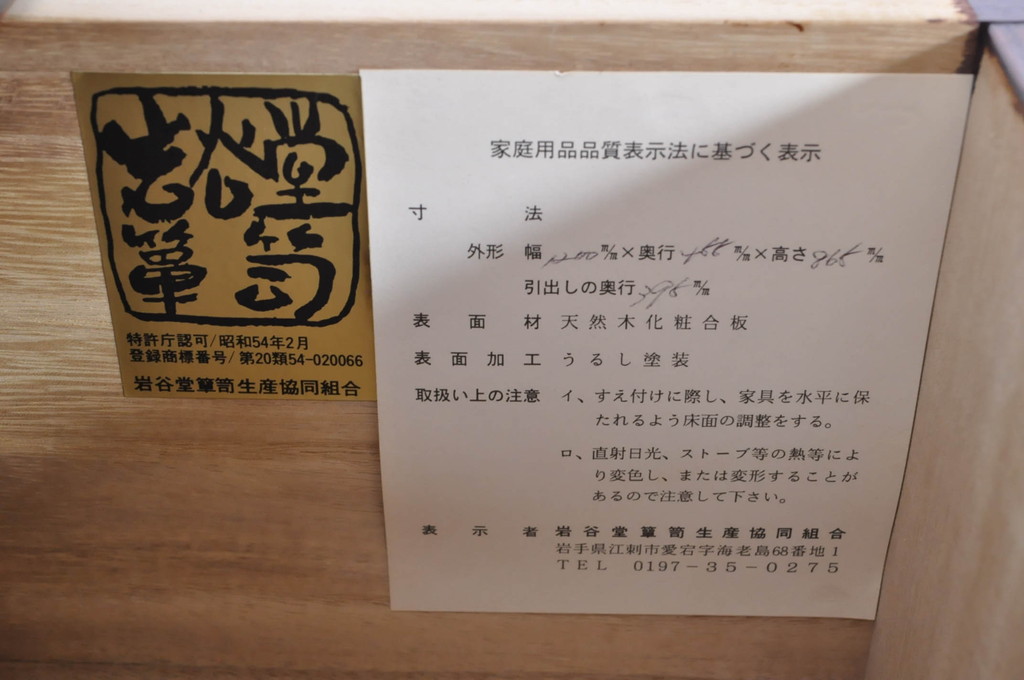 岩谷堂
簞笥
特許庁認可/昭和54年2月
登録商標番号/第20類54-020066
岩谷堂簞笥生産協同組合
家庭用品品質表示法に基づく表示
寸法
外形 幅 1200 m/m×奥行 m/m×高さ 865 m/m
引出しの奥行 395 m/m
表面材 天然木化粧合板
表面加工 うるし塗装
取扱い上の注意 イ、すえ付けに際し、家具を水平に保
たれるよう床面の調整をする。
ロ、直射日光、ストーブ等の熱等によ
り変色し、または変形することが
あるので注意して下さい。
表示者 岩谷堂簞笥生産協同組合
岩手県江刺市愛宕字海老島68番地1
TEL 0197-35-0275